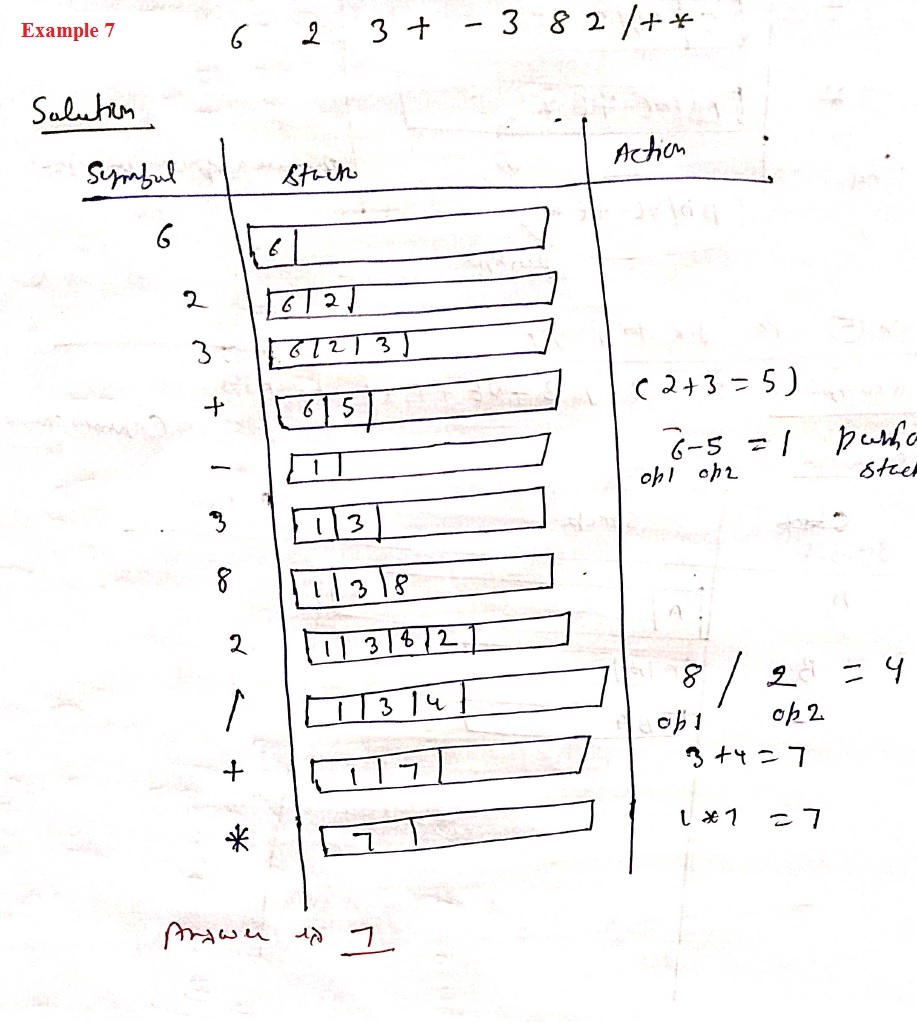 Example 7
6 2 3 + - 3 8 2 / + *
Solution
Symbol Stack Action
6 6
2 6 2
3 6 2 3
+ 6 5 (2+3=5)
- 1 6-5 = 1
op1 op2
3 1 3
8 1 3 8
2 1 3 8 2
/ 1 3 4 8 / 2 = 4
op1 op2
+ 1 7 3+4=7
* 7 1*7 = 7
Answer is 7